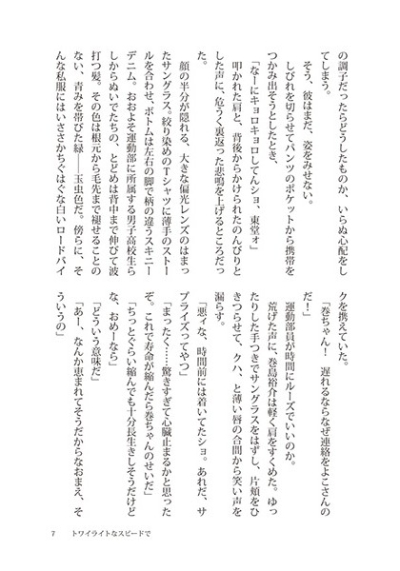 の調子だったらどうしたものか、いらぬ心配をし
てしまう。
そう、彼はまだ、姿をみせない。
しびれを切らせてパンツのポケットから携帯を
つかみ出そうとしたとき、
「なーにキョロキョロしてんショ、東堂ォ」
叩かれた肩と、背後からかけられたのんびりと
した声に、危うく裏返った悲鳴を上げるところだっ
た。
顔の半分が隠れる、大きな偏光レンズのはまっ
たサングラス。絞り染めのTシャツに薄手のストー
ルを合わせ、ボトムは左右の脚で柄の違うスキニー
デニム。おおよそ運動部に所属する男子高校生ら
しからぬいでたちの、とどめは背中まで伸びて波
打つ髪。その色は根元から毛先まで褪せることの
ない、青みを帯びた緑――玉虫色だ。傍らに、そ
んな私服にはいささかちぐはぐな白いロードバイ
クを携えていた。
「巻ちゃん! 遅れるならなぜ連絡をよこさんの
だ!」
運動部員が時間にルーズでいいのか。
荒げた声に、巻島裕介は軽く肩をすくめた。ゆっ
たりした手つきでサングラスをはずし、片頬をひ
きつらせて、クハ、と薄い唇の合間から笑い声を
漏らす。
「悪ィな、時間前には着いてたショ。あれだ、サ
プライズってやつ」
「まったく……驚きすぎて心臓止まるかと思った
ぞ。これで寿命が縮んだら巻ちゃんのせいだ」
「ちっとぐらい縮んでも十分長生きしそうだけど
な、おめーなら」
「どういう意味だ」
「あー、なんか恵まれてそうだからなおまえ、そ
ういうの」
7 トワイライトなスピードで